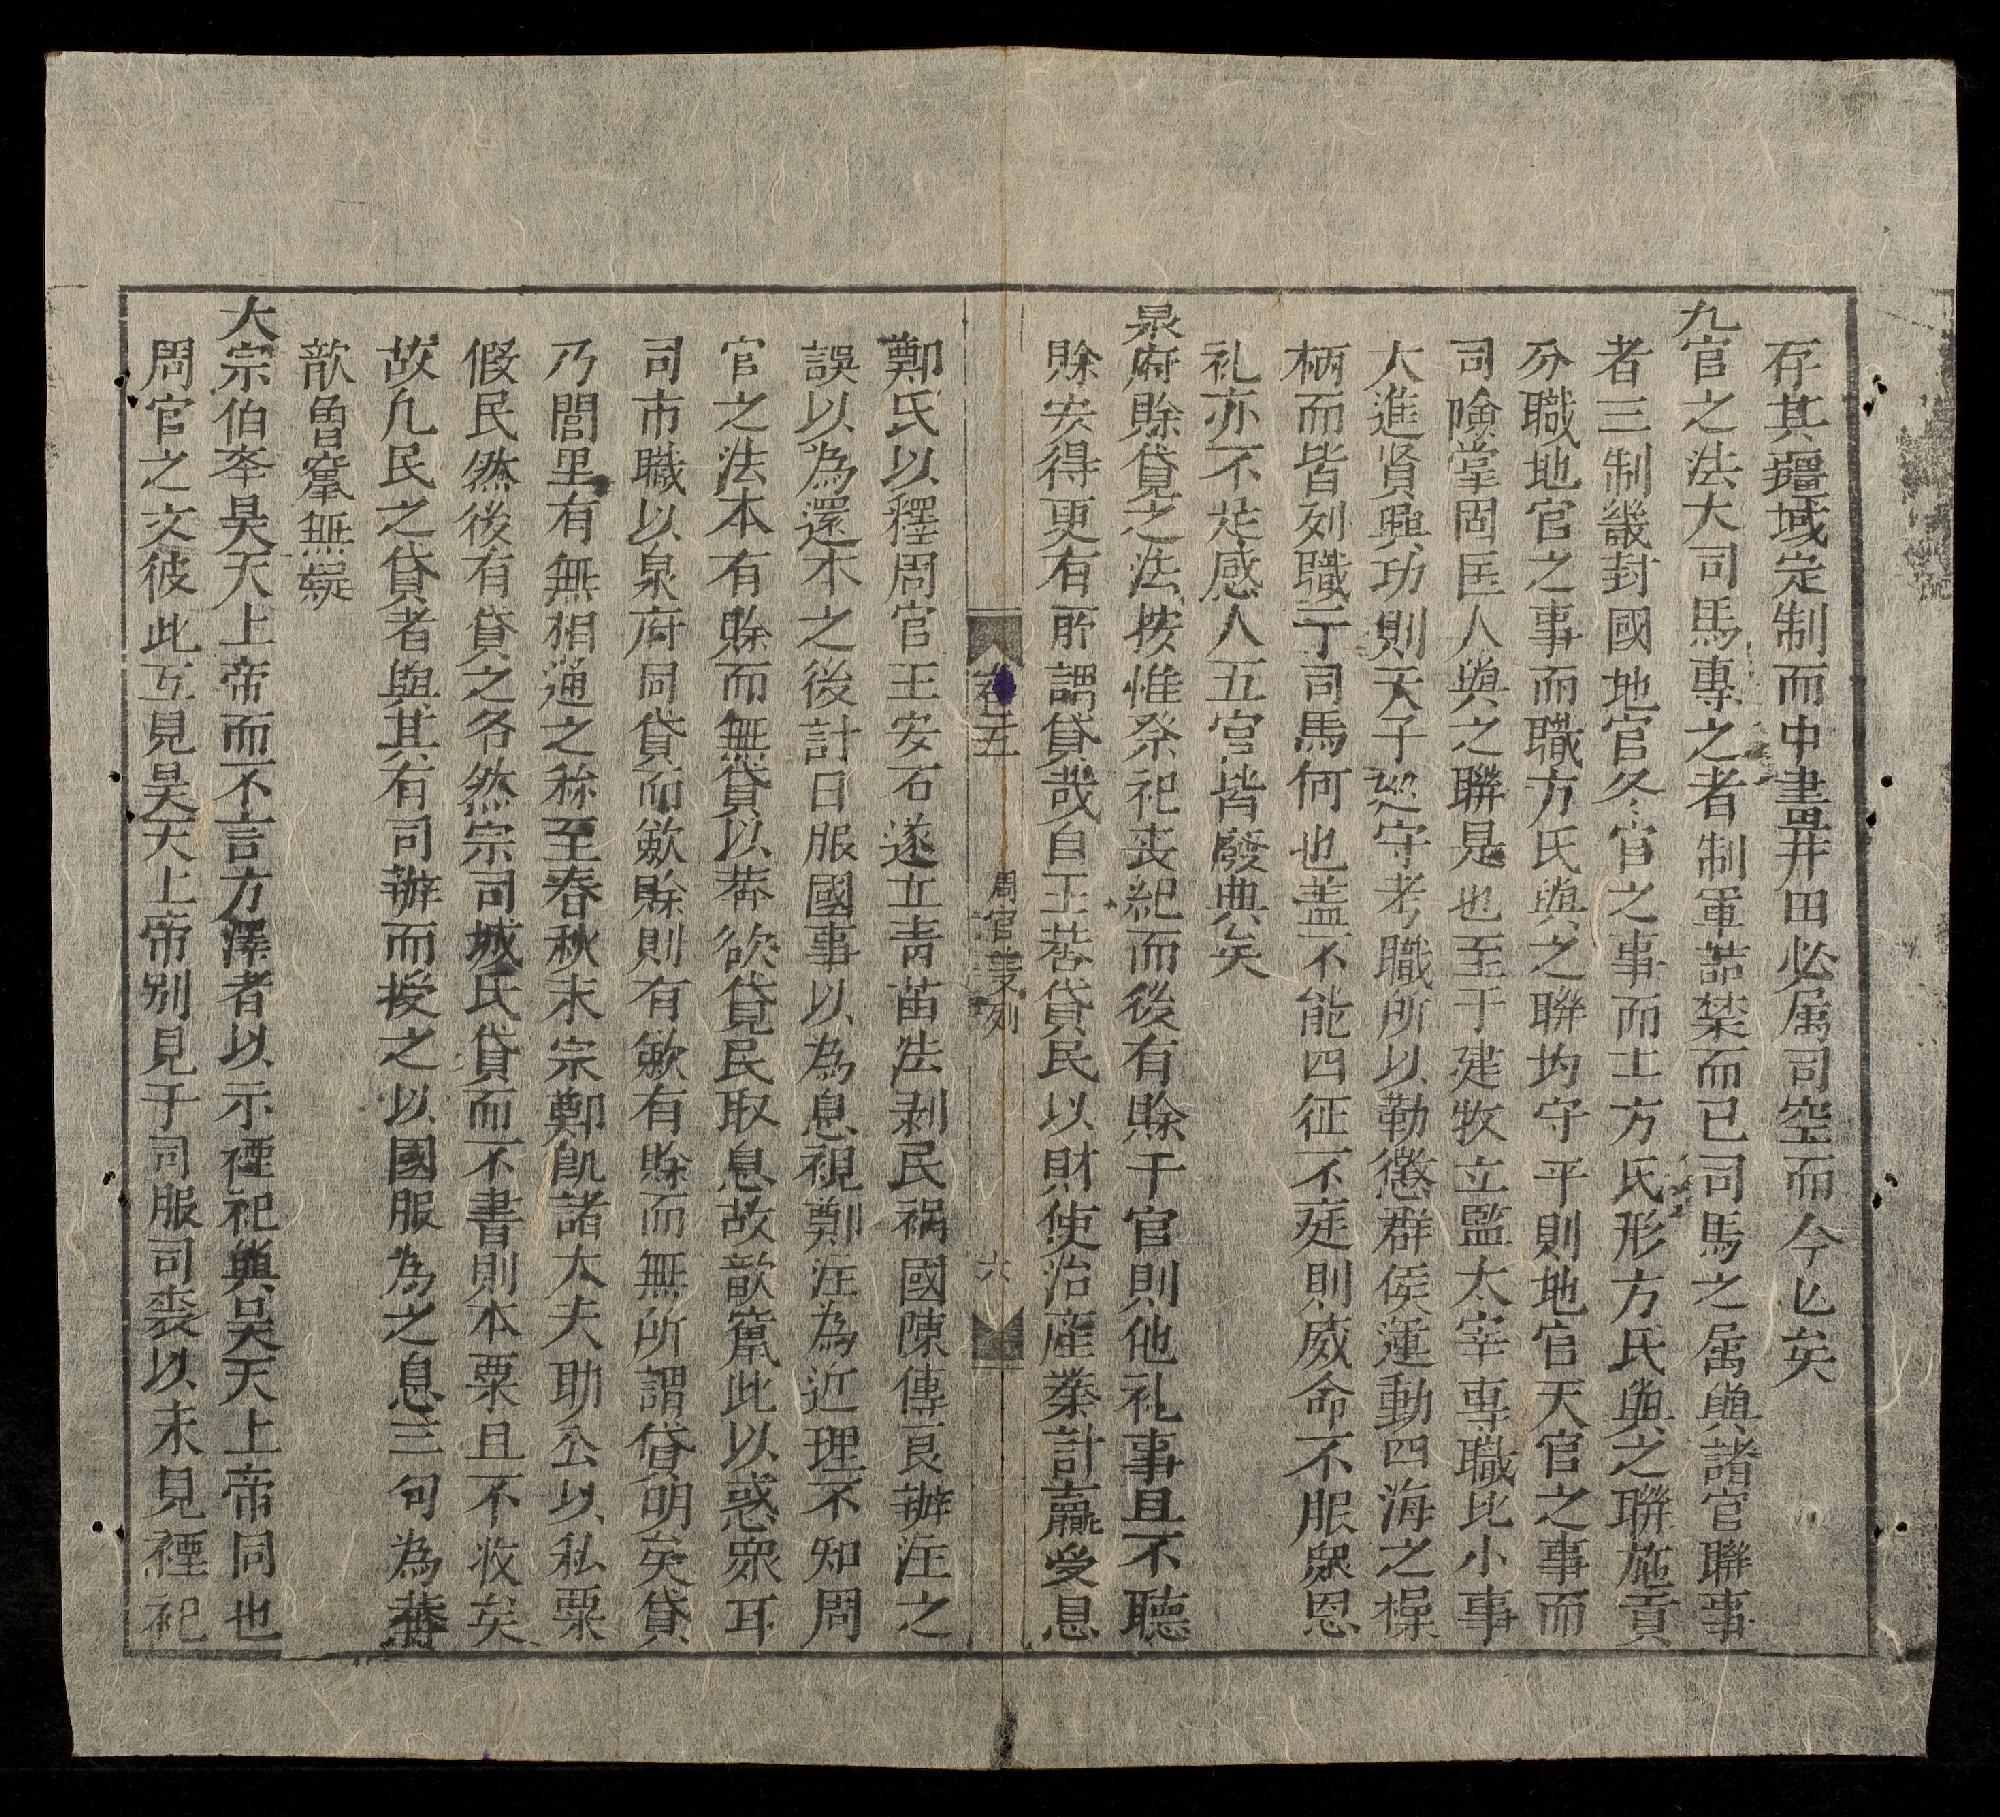 存其疆域定制而中畫井田必属司空而今亾矣
九官之法大司馬專之者制軍詰禁而已司馬之属與諸官聯事
者三制畿封國地官冬官之事而土方氏形方氏與之聯施貢
分職地官之事而職方氏與之聯均守平則地官天官之事而
司險掌固匡人與之聯是也至于建牧立監太宰專職比小事
大進賢興功則天子廵守考職所以勸懲群侯運動四海之操
柄而皆列職于司馬何也盖不能四征不庭則威命不服眾恩
礼亦不足感人五官皆廢典矣
泉府賖貸之法按惟祭祀丧紀而後有賖于官則他礼事且不聽
賖安得更有所謂貸哉自王莽貸民以財使治産業計贏受息
卷五
周官筭列
六
鄭氏以釋周官王安石遂立青苗法剥民禍國陳傅良辦注之
誤以為還本之後計日服國事以為息視鄭注為近理不知周
官之法本有賖而無貸以莽欲貸民取息故歆竄此以惑眾耳
司市職以泉府同貸而歛賖則有歛有賖而無所謂貸明矣貸
乃閭里有無相通之称至春秋末宗鄭飢諸大夫助公以私粟
假民然後有貸之名然宗司城氏貸而不書則本粟且不收矣
故凡民之貸者與其有司辦而授之以國服為之息三句為莽
歆曾竄無疑
大宗伯夲昊天上帝而不言方澤者以示禋祀與昊天上帝同也
周官之文彼此互見昊天上帝别見于司服司裘以未見禋祀